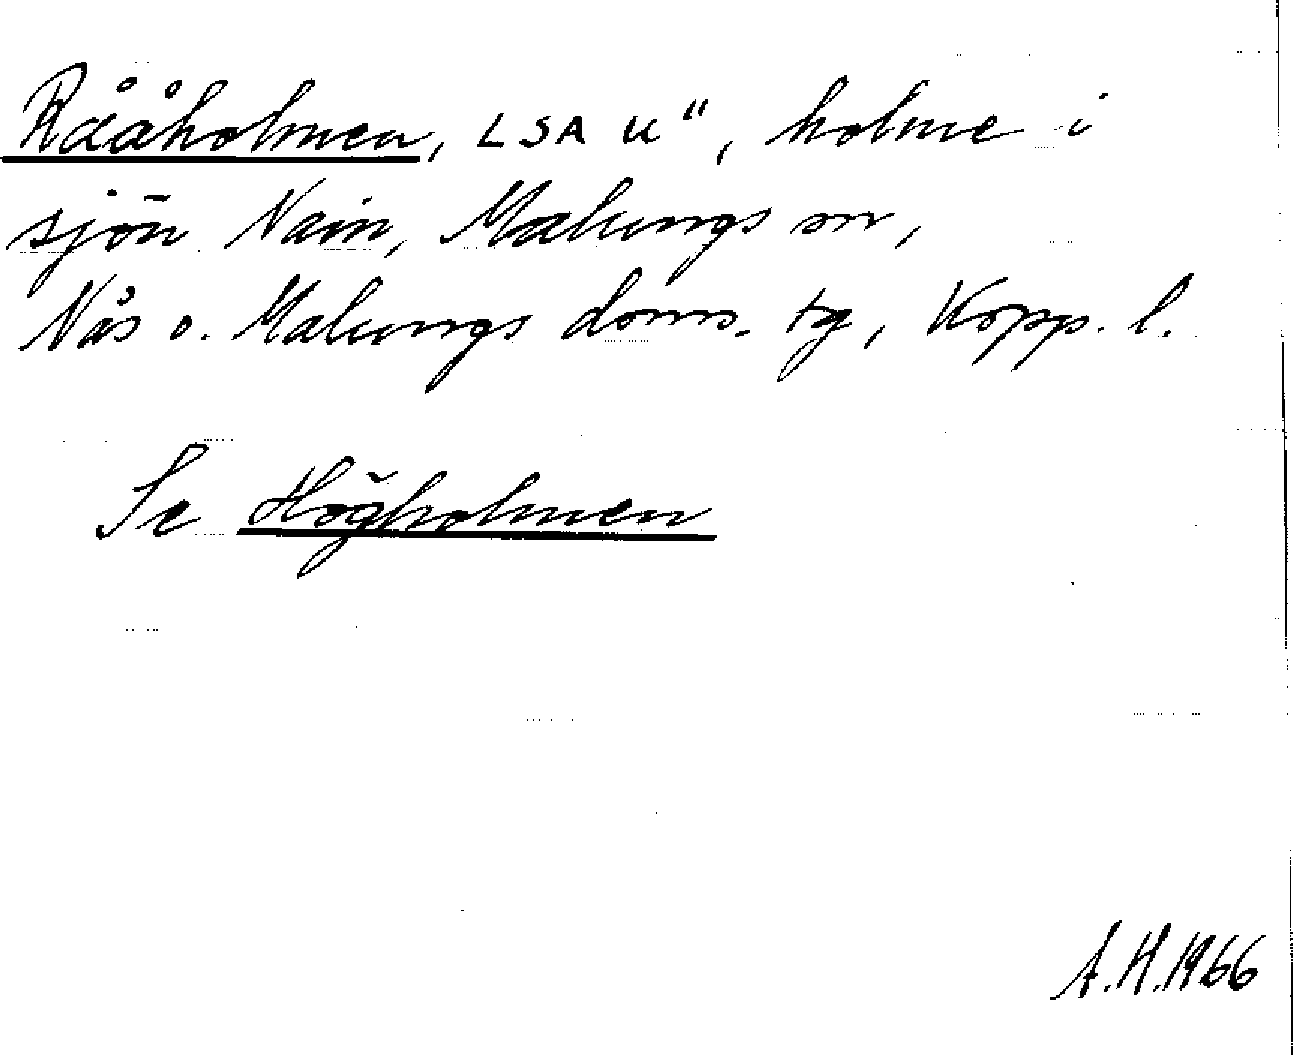 Rååholmen, LSA U", holme i
sjön Nain, Malungs sn,
Nås o. Malungs doms. tg, Kopp. l.
Se Högholmen
A.H. 1966